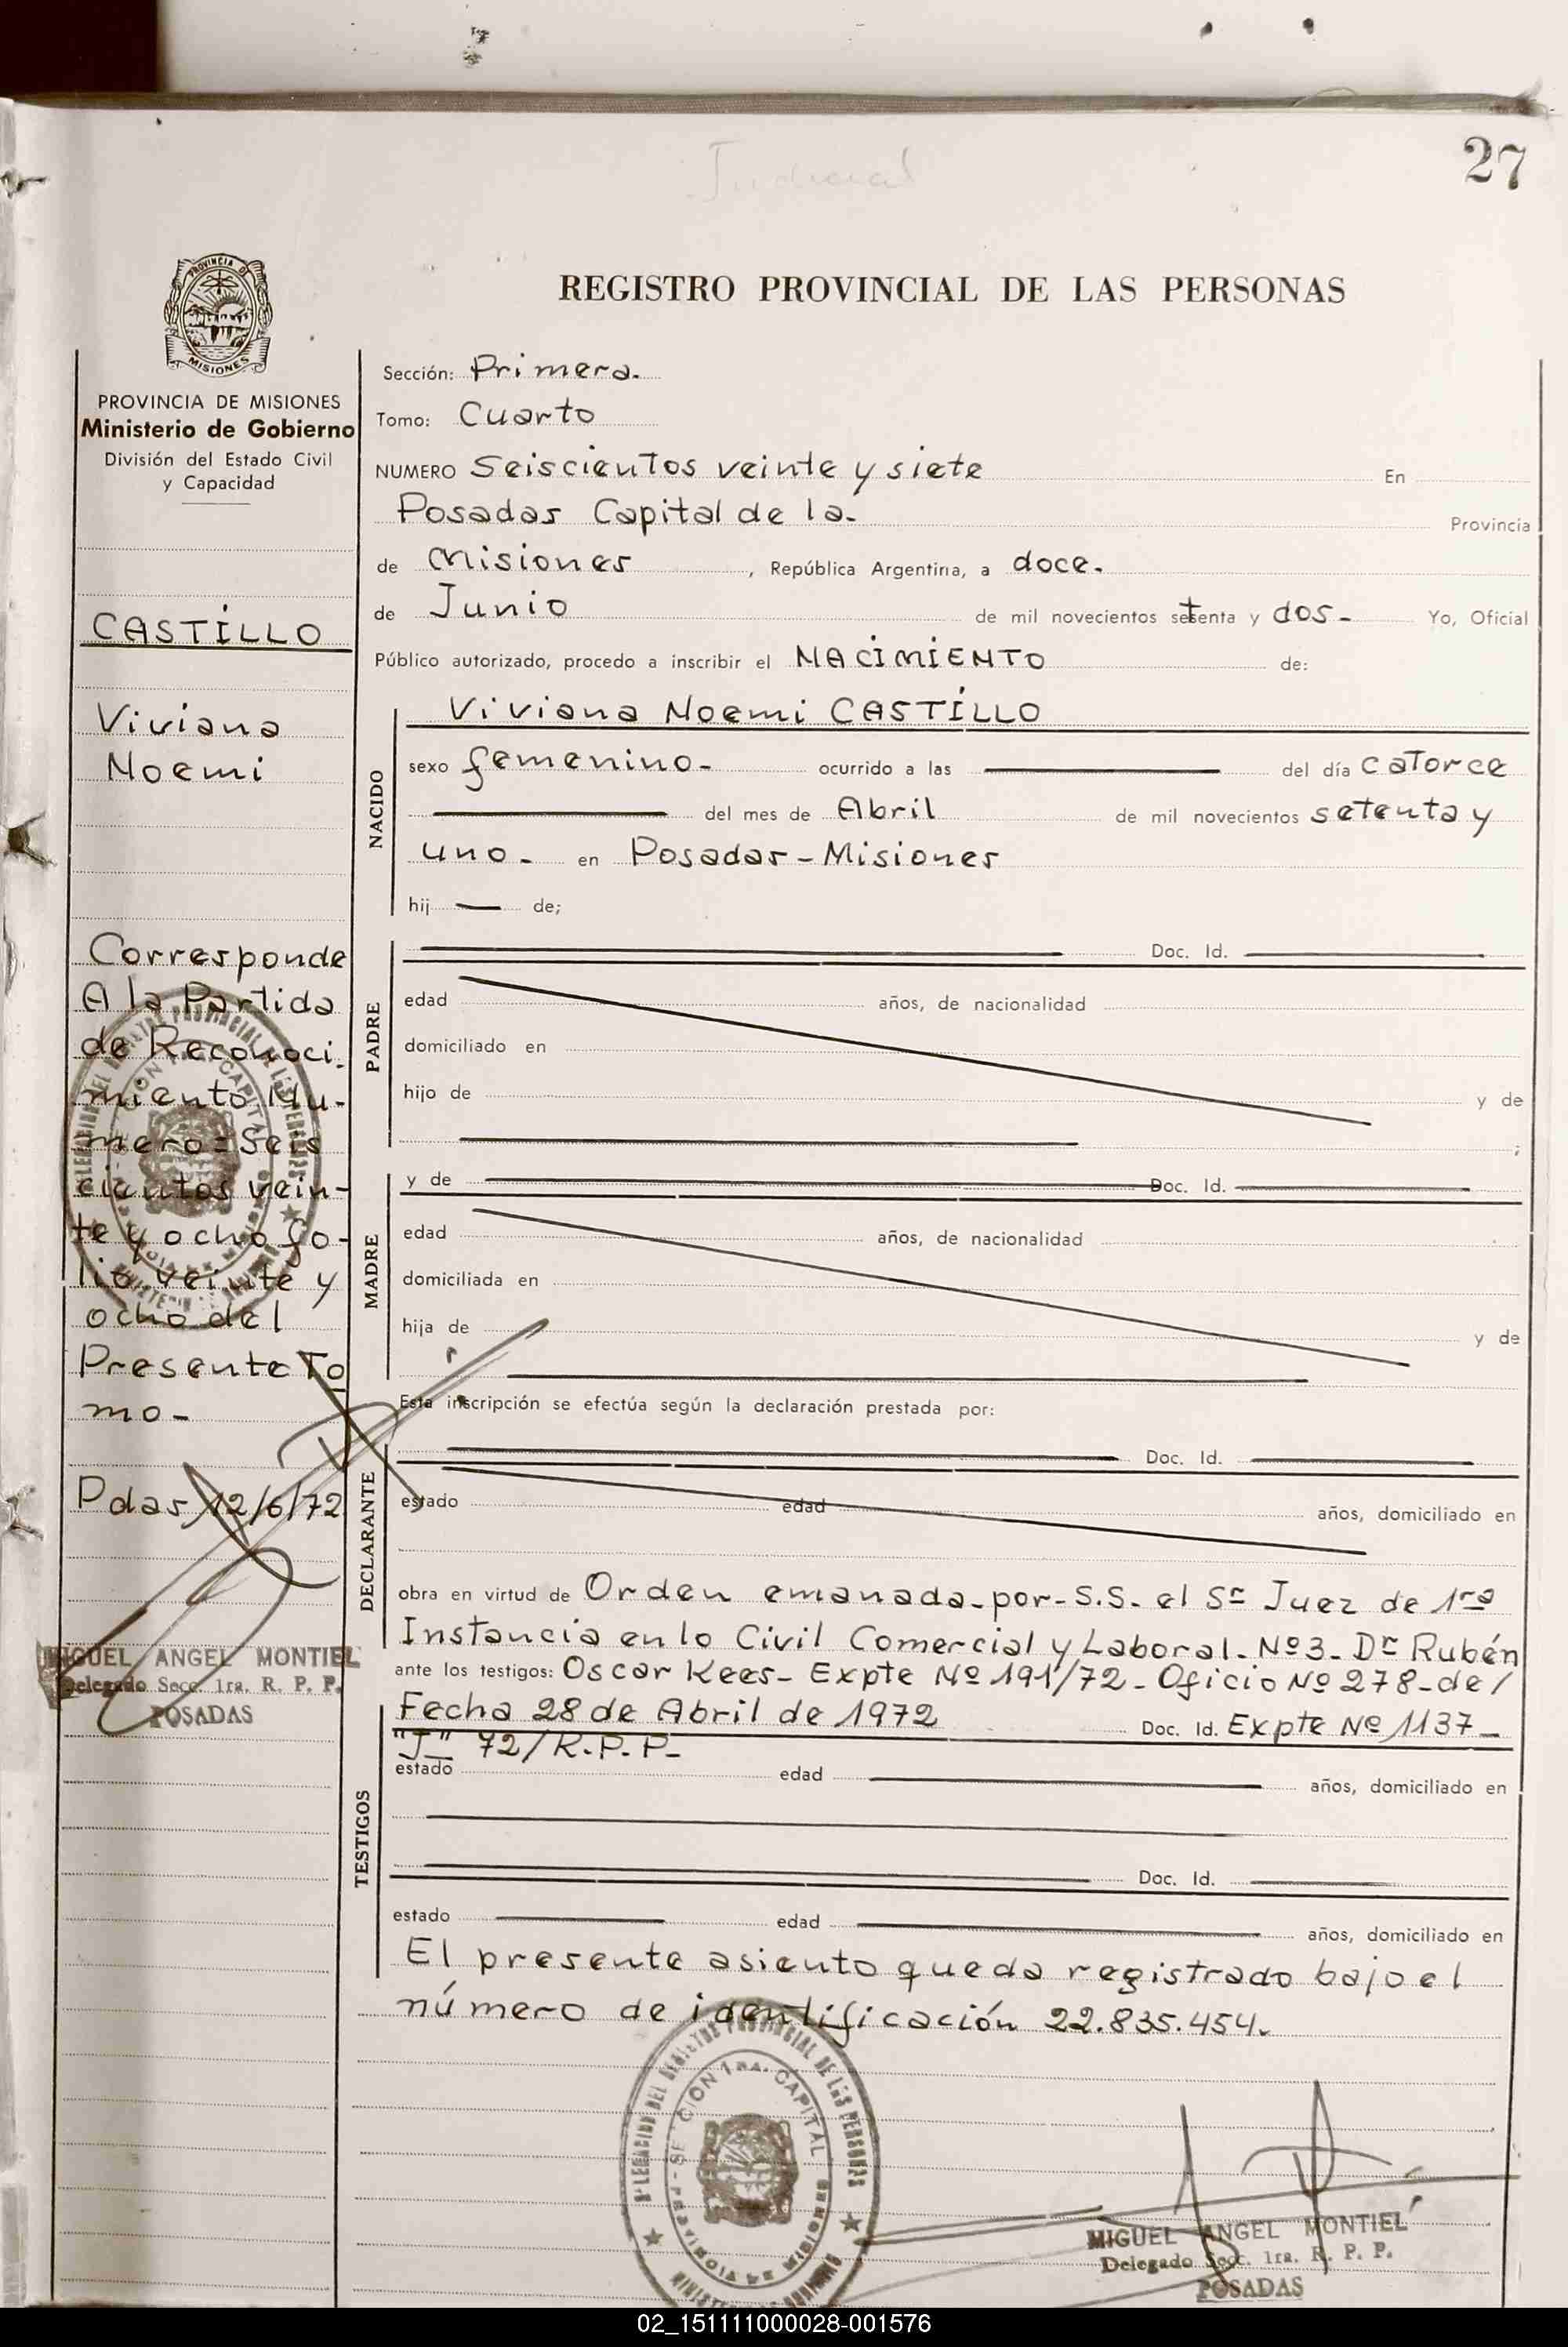 Judicial
27
PROVINCIA DE
MISIONES
PROVINCIA DE MISIONES
Ministerio de Gobierno
División del Estado Civil
y Capacidad
CASTILLO
Viviana
Noemi
Corresponde
A la Partida
de Reconoci-
miento Nu-
mero = Seis
cientos vein-
te y ocho fo-
lio veinte y
ocho del
Presente To
mo-
Pdas 12/6/72
MIGUEL ANGEL MONTIEL
Delegado Secc. 1ra. R. P. P.
POSADAS
REGISTRO PROVINCIAL DE LAS PERSONAS
Sección: Primera.
Tomo: Cuarto
NUMERO Seiscientos veinte y siete En
Posadas Capital de la- Provincia
de Misiones, República Argentina, a doce.
de Junio de mil novecientos setenta y dos- Yo, Oficial
Público autorizado, procedo a inscribir el NACIMIENTO de:
NACIDO
Viviana Noemi CASTILLO
sexo femenino- ocurrido a las del día catorce
del mes de Abril de mil novecientos setenta y
uno- en Posadas-Misiones
hij de;
PADRE
Doc. Id.
edad años, de nacionalidad
domiciliado en
hijo de y de
;
MADRE
y de Doc. Id.
edad años, de nacionalidad
domiciliada en
hija de y de
Esta inscripción se efectúa según la declaración prestada por:
DECLARANTE
Doc. Id.
estado edad años, domiciliado en
obra en virtud de Orden emanada-por-S.S. el Sr Juez de 1ra
Instancia en lo Civil Comercial y Laboral-Nº3-Dr Rubén
ante los testigos: Oscar Kees- Expte Nº 191/72-Oficio Nº 278-del
TESTIGOS
Fecha 28 de Abril de 1972 Doc. Id. Expte Nº 1137-
"J" 72/R.P.P-
estado edad años, domiciliado en
Doc. Id.
estado edad años, domiciliado en
El presente asiento queda registrado bajo el
número de identificación 22.835.454.
DELEGACION DEL REGISTRO PROVINCIAL DE LAS PERSONAS
SECCION 1RA. CAPITAL
PROVINCIA DE MISIONES
MIGUEL ANGEL MONTIEL
Delegado Secc. 1ra. R. P. P.
POSADAS
02_151111000028-001576